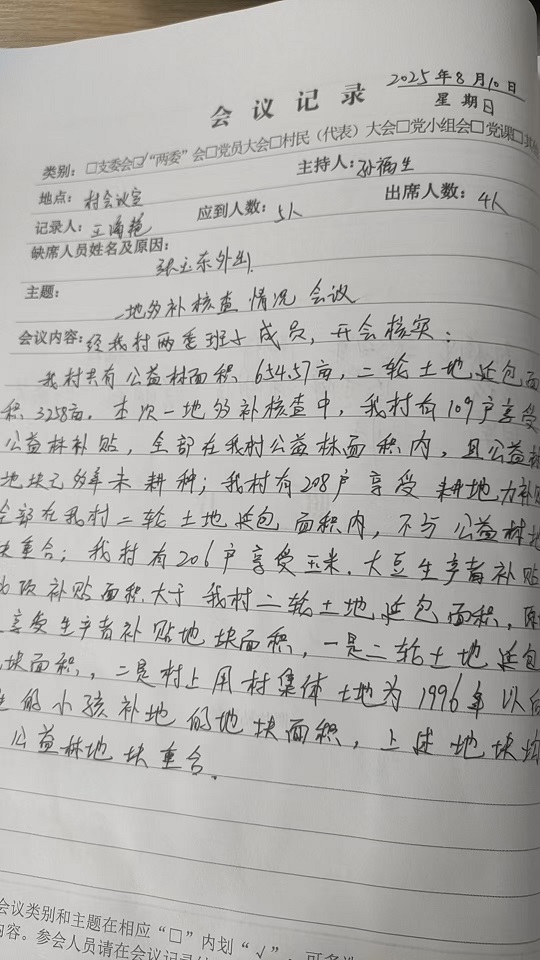 2025年8月10日
会议记录
星期日
类别：□支委会☑“两委”会□党员大会□村民（代表）大会□党小组会□党课□其他
地点：村会议室
主持人：孙福生
记录人：王海艳
应到人数：5人
出席人数：4人
缺席人员姓名及原因：
张玉东外出
主题：
一地多补核查情况会议
会议内容：经我村两委班子成员，开会核实：
我村共有公益林面积654.57亩，二轮土地延包面
积3258亩。本次一地多补核查中，我村有109户享受
公益林补贴，全部在我村公益林面积内，且公益林
地块已多年未耕种；我村有208户享受耕地力补贴
全部在我村二轮土地延包面积内，不与公益林地
块重合；我村有206户享受玉米、大豆生产者补贴
项补贴面积大于我村二轮土地延包面积，
享受生产者补贴地块面积，一是二轮土地延包
块面积，二是村上用村集体土地为1996年以后
的小孩补地的地块面积，上述地块均
公益林地块重合。
会议类别和主题在相应“□”内划“√”，可多选
内容。参会人员请在会议记录